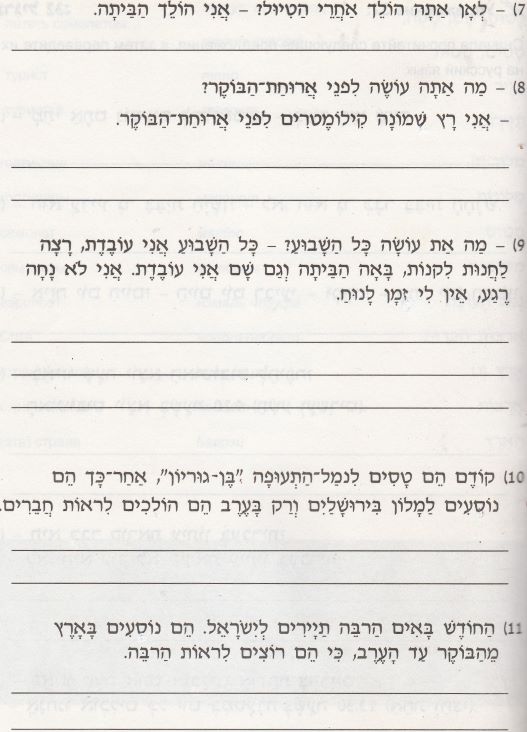 7) – לְאָן אַתָּה הוֹלֵךְ אַחֲרֵי הַטִּיּוּל? – אֲנִי הוֹלֵךְ הַבַּיְתָה.
8) – מַה אַתָּה עוֹשֶׂה לִפְנֵי אֲרוּחַת־הַבּוֹקֶר?
– אֲנִי רָץ שְׁמוֹנָה קִילוֹמֶטְרִים לִפְנֵי אֲרוּחַת־הַבּוֹקֶר.
9) – מַה אַתְּ עוֹשָׂה כָּל הַשָּׁבוּעַ? – כָּל הַשָּׁבוּעַ אֲנִי עוֹבֶדֶת, רָצָה
לַחֲנוּת לִקְנוֹת, בָּאָה הַבַּיְתָה וְגַם שָׁם אֲנִי עוֹבֶדֶת. אֲנִי לֹא נָחָה
רֶגַע, אֵין לִי זְמַן לָנוּחַ.
10) קוֹדֶם הֵם טָסִים לִנְמַל־הַתְּעוּפָה "בֶּן-גּוּרִיוֹן", אַחַר־כָּךְ הֵם
נוֹסְעִים לַמָּלוֹן בִּירוּשָׁלַיִם וְרַק בָּעֶרֶב הֵם הוֹלְכִים לִרְאוֹת חֲבֵרִים.
11) הַחוֹדֶשׁ בָּאִים הַרְבֵּה תַּיָּירִים לְיִשְׂרָאֵל. הֵם נוֹסְעִים בָּאָרֶץ
מֵהַבּוֹקֶר עַד הָעֶרֶב, כִּי הֵם רוֹצִים לִרְאוֹת הַרְבֵּה.